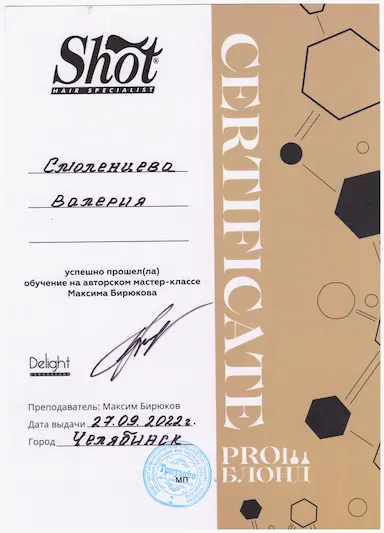 Shot®
HAIR SPECIALIST
CERTIFICATE
Смоленцева
Валерия
успешно прошел(ла)
обучение на авторском мастер-классе
Максима Бирюкова
Delight
Преподаватель: Максим Бирюков
Дата выдачи 27.09.2022г.
Город Челябинск
МП
PRO
БЛОНД